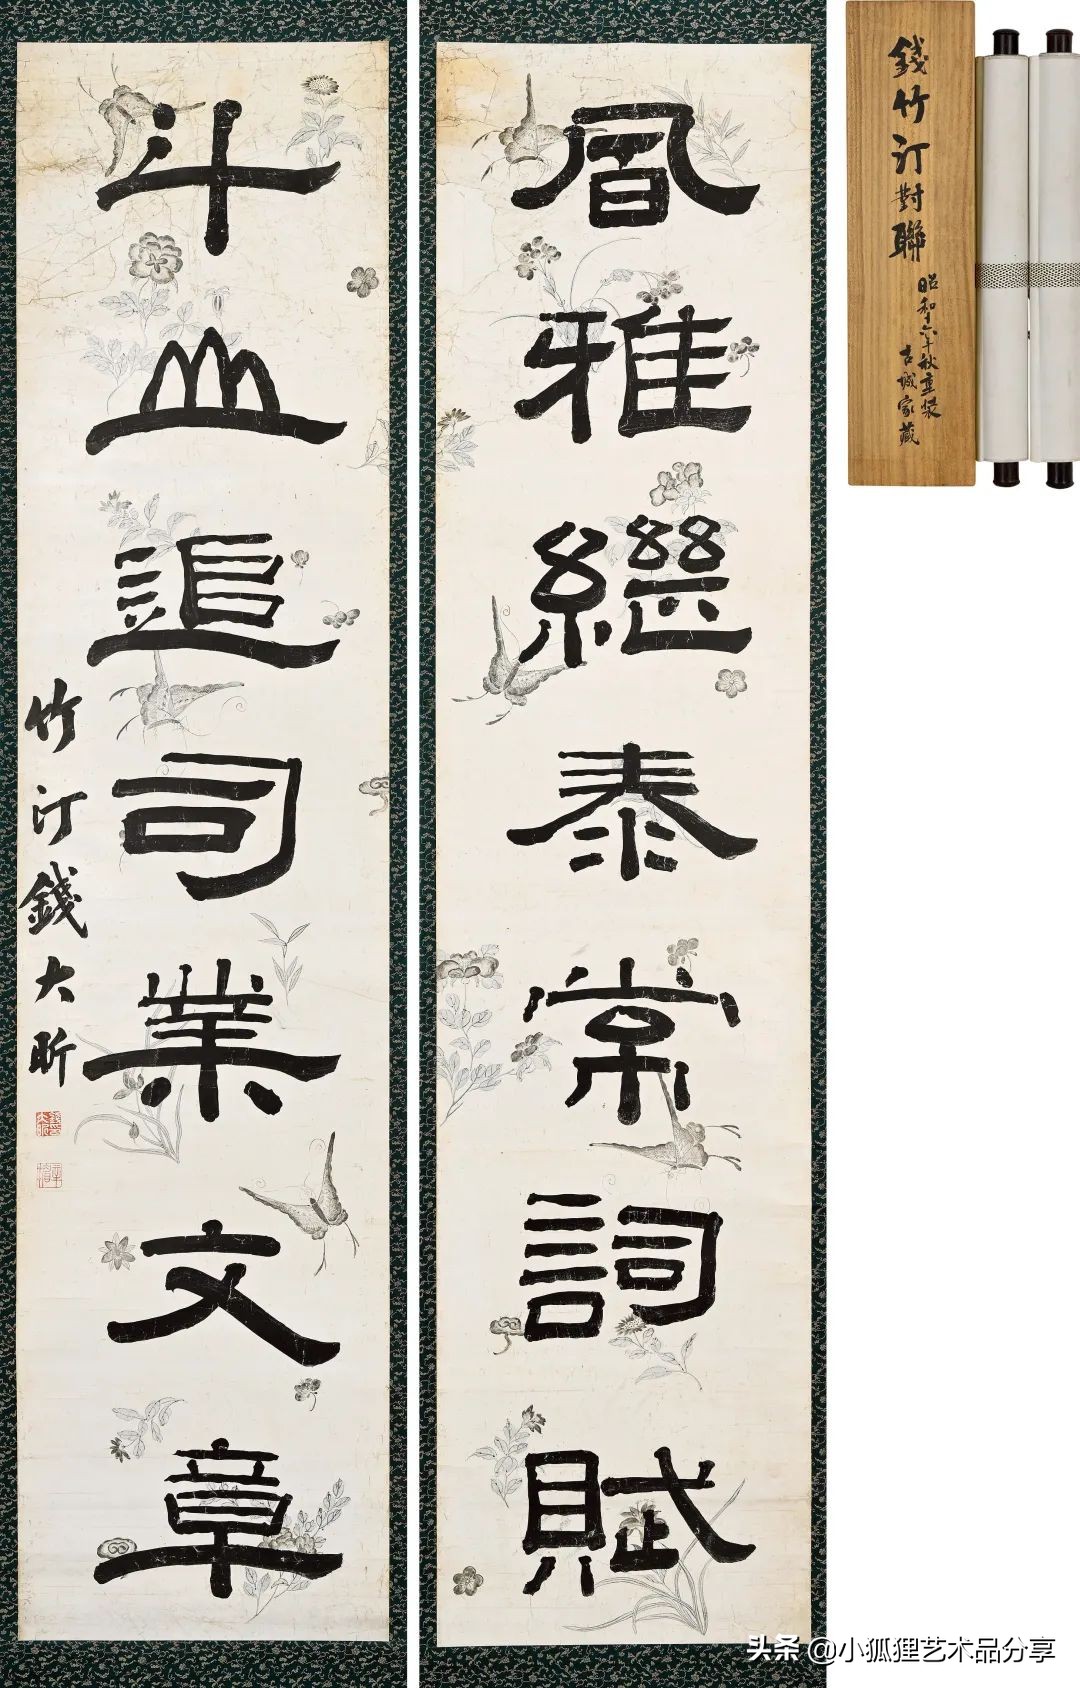 風雅繼泰常詞賦
斗山追司業文章
竹汀錢大昕
錢竹汀對聯
昭和十六年秋重裝
古城家藏
头条 @小狐狸艺术品分享